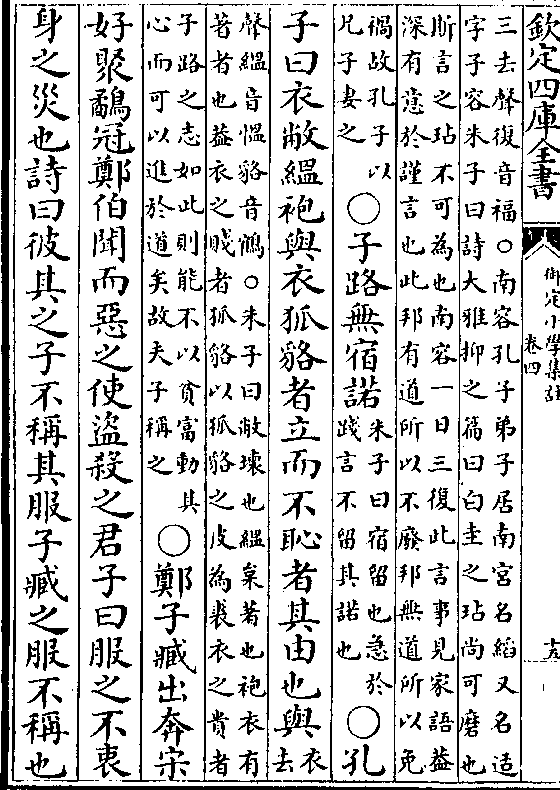 欽定四庫全書
御定小學集註
卷四
十五
三去聲復音福○南容孔子弟子居南宮名縚又名适
字子容朱子曰詩大雅抑之篇曰白圭之玷尚可磨也
斯言之玷不可為也南容一日三復此言事見家語葢
深有意於謹言也此邦有道所以不廢邦無道所以免
禍故孔子以
兄子妻之
○子路無宿諾
朱子曰宿留也急於
踐言不留其諾也
○孔
子曰衣敝縕袍與衣狐貉者立而不恥者其由也與
衣
去
聲縕音愠貉音鶴○朱子曰敝壞也縕枲著也袍衣有
著者也葢衣之賤者狐貉以狐貉之皮為裘衣之貴者
子路之志如此則能不以貧富動其
心而可以進於道矣故夫子稱之
○鄭子臧出奔宋
好聚鷸冠鄭伯聞而惡之使盜殺之君子曰服之不衷
身之災也詩曰彼其之子不稱其服子臧之服不稱也